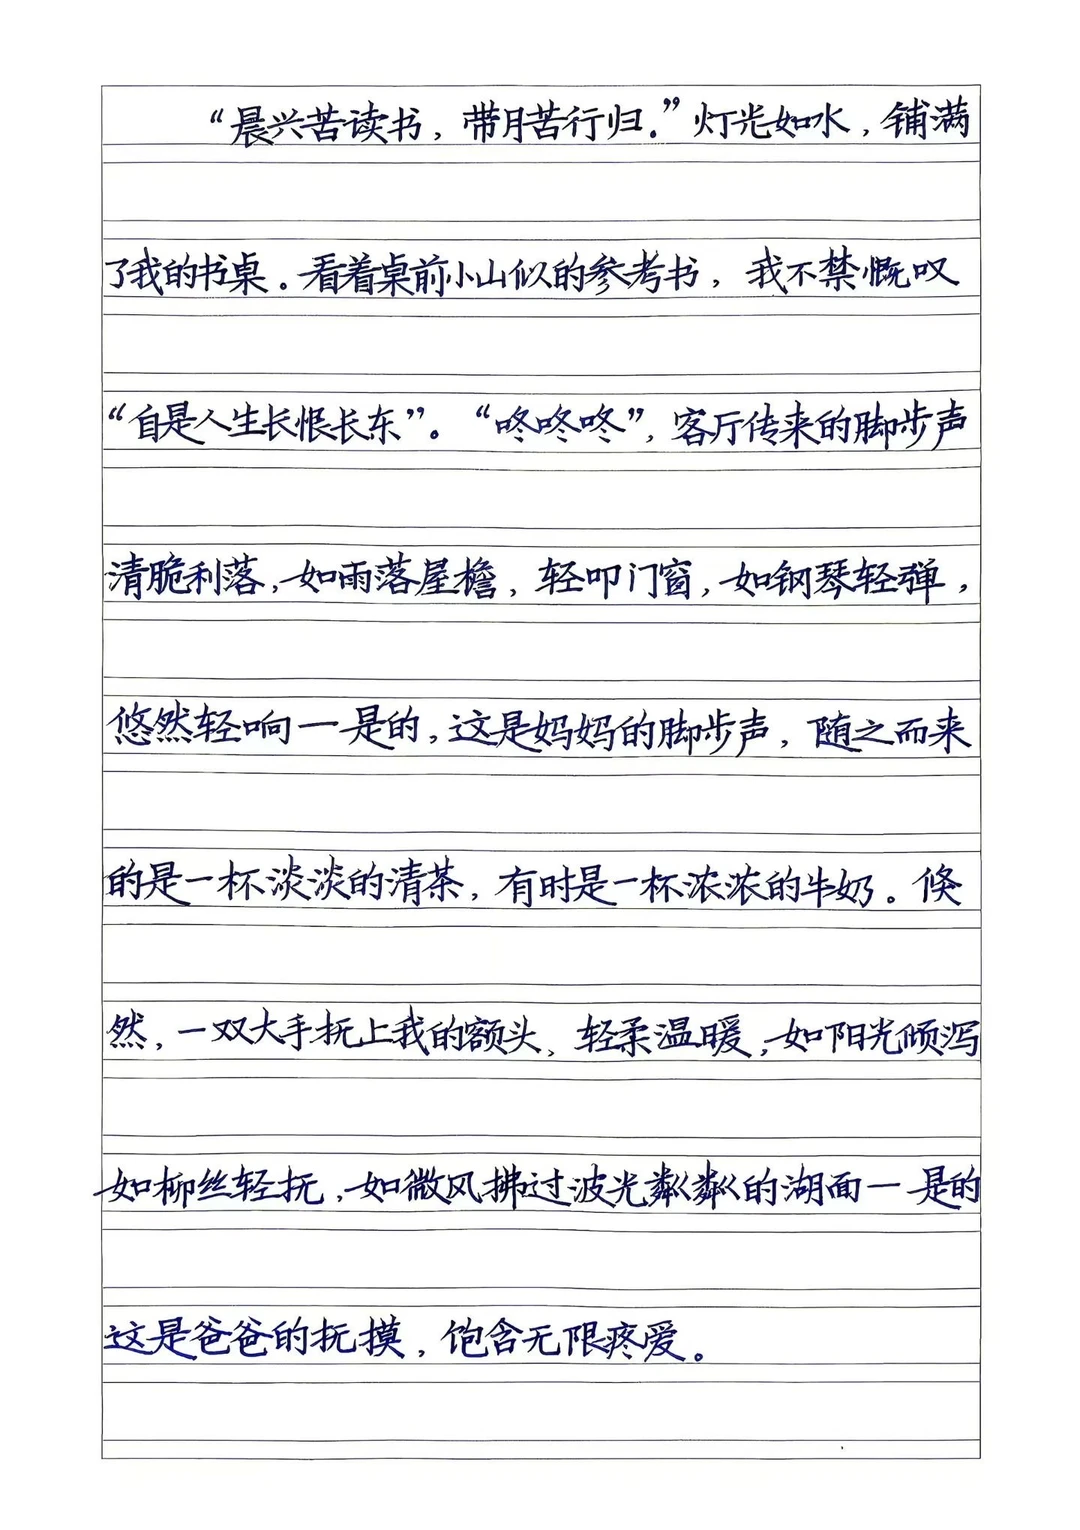 “晨兴苦读书，带月苦行归.”灯光如水，铺满
了我的书桌。看着桌前小山似的参考书，我不禁慨叹
“自是人生长恨长东”。“咚咚咚”，客厅传来的脚步声
清脆利落，如雨落屋檐，轻叩门窗，如钢琴轻弹，
悠然轻响一是的，这是妈妈的脚步声，随之而来
的是一杯淡淡的清茶，有时是一杯浓浓的牛奶。倏
然，一双大手抚上我的额头、轻柔温暖，如阳光倾泻
如柳丝轻抚，如微风拂过波光粼粼的湖面一是的
这是爸爸的抚摸，饱含无限疼爱。